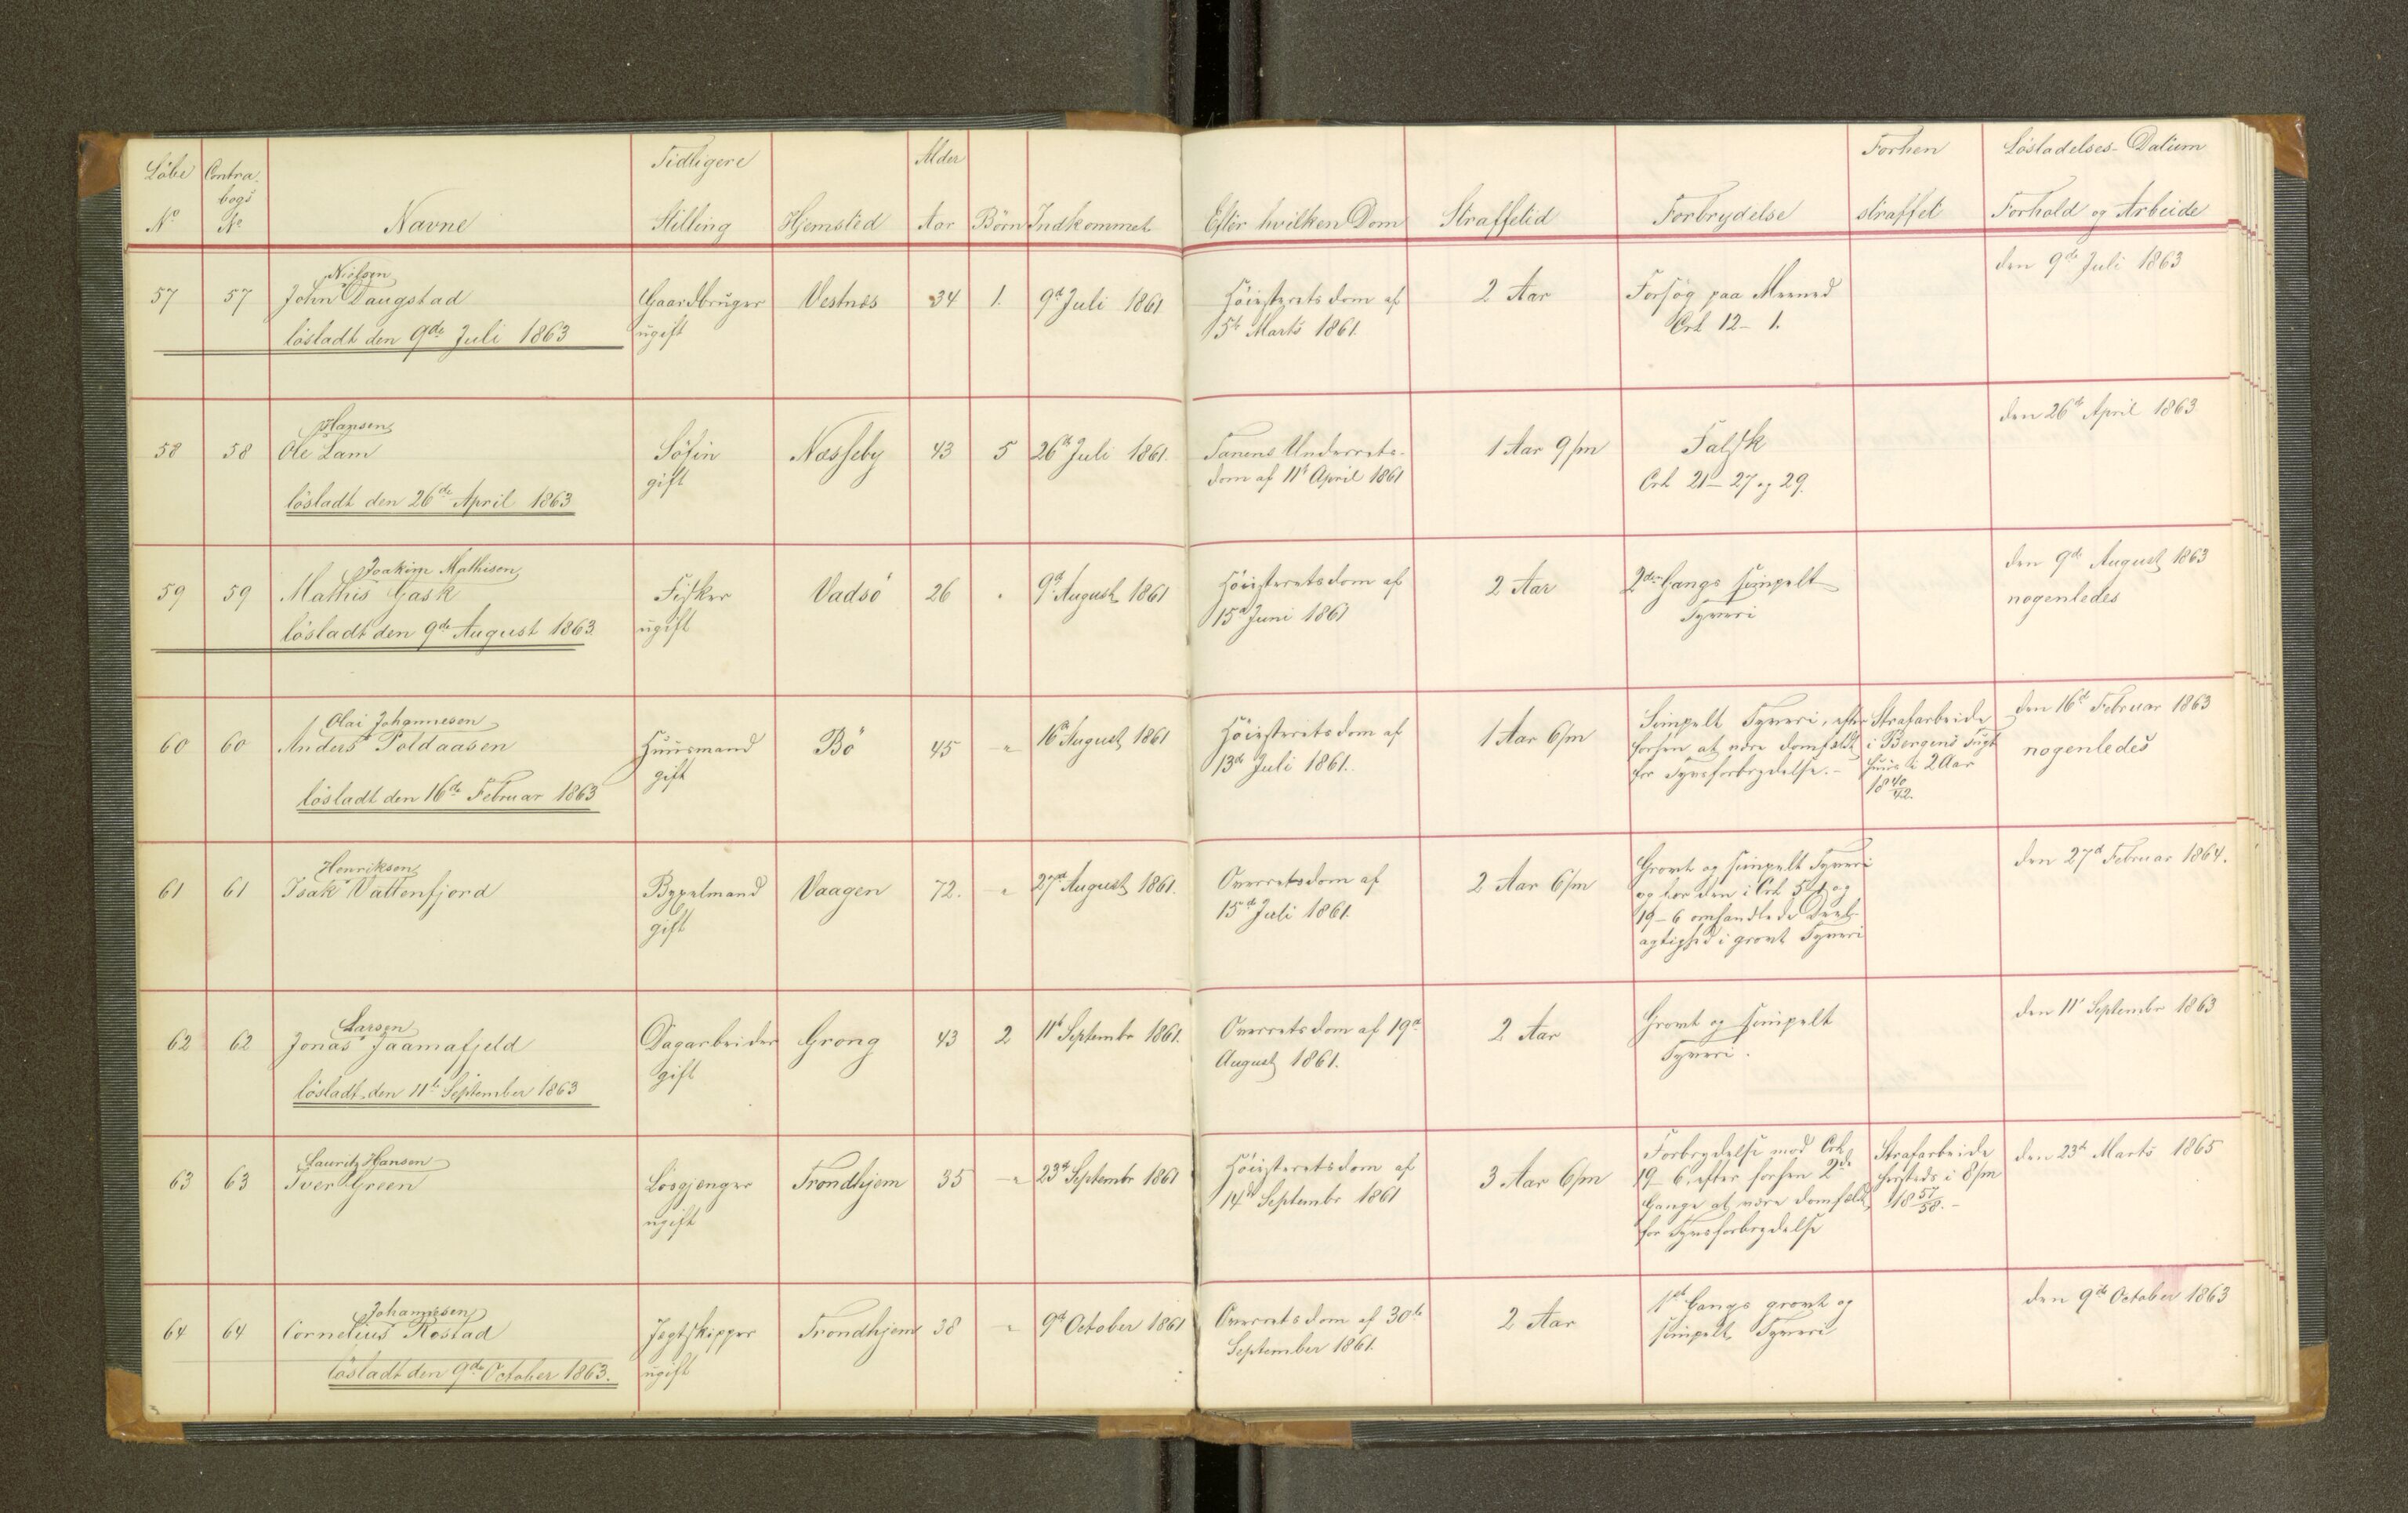 Löbe Nº Contrabogs Nº Navne Tidligere Stilling Hjemsted Alder Aar Börn Indkommet Efter hvilken Dom Straffetid Forbrydelse Forhen straffet Lösladelses-Datum Forhold og Arbeide
57 57 John Nielsen Daugstad Gaardbruger Vestnæs 34 1. 9de Juli 1861 Höiesteretsdom af 2 Aar Forsög paa Meened den 9de Juli 1863
lösladt den 9de Juli 1863 ugift 5te Marts 1861. Crl 12-1.
58 58 Ole Hansen Lam gift Næsseby 43 5 26de Juli 1861. Tanens Underrets- 1 Aar 9/m Falsk den 26de April 1863
lösladt den 26de April 1863 dom af 11te April 1861 Crl 21-27 og 29.
59 59 Mathis Joakim Mathisen Gask Fisker Vadsö 26 9de August 1861 Höiesteretsdom af 2 Aar 2den Gangs simpelt den 9de August 1863
lösladt den 9de August 1863. ugift 15de Juni 1861 Tyveri nogenledes
60 60 Anders Olai Johannesen Poldaasen Huusmand Bö 45 " 16de August 1861 Höiesteretsdom af 1 Aar 6/m Simpelt Tyveri, efter Strafarbeide den 16de Februar 1863
gift 13de Juli 1861. forhen at være domfældt i Bergens Tugt- nogenledes
lösladt den 16de Februar 1863 for Tyvsforbrydelse.- huus i 2 Aar
18 40/42.
61 61 Isak Henriksen Vattenfjord Bygselmand Vaagen 72. " 27de August 1861. Overretsdom af 2 Aar 6/m Grovt og simpelt Tyveri den 27de Februar 1864.
gift 15de Juli 1861. og for den i Crl og
19-6 omhandlede Deel-
agtighed i grovt Tyveri
62 62 Jonas Larsen Jaamafjeld Dagarbeider Grong 43 2 11te Septembr 1861. Overretsdom af 19de 2 Aar Grovt og simpelt den 11te Septembr 1863
lösladt den 11te September 1863 gift August 1861. Tyveri.
63 63 Iver Lauritz Hansen Green Lösgjenger Trondhjem 35 " 23de Septembr 1861 Höiesteretsdom af 3 Aar 6/m Forbrydelse mod Crl Strafarbeide den 23de Marts 1865
ugift 14de Septembr 1861 19-6, efter forhen 2de hersteds i 8/m
Gange at være domfældt 18 57/58.-
for Tyvsforbrydelse
64 64 Cornelius Johannesen Rostad Jegtskipper Trondhjem 38 " 9de October 1861 Overretsdom af 30te 2 Aar 1ste Gangs grovt og den 9de October 1863
lösladt den 9de October 1863. ugift September 1861. simpelt Tyveri